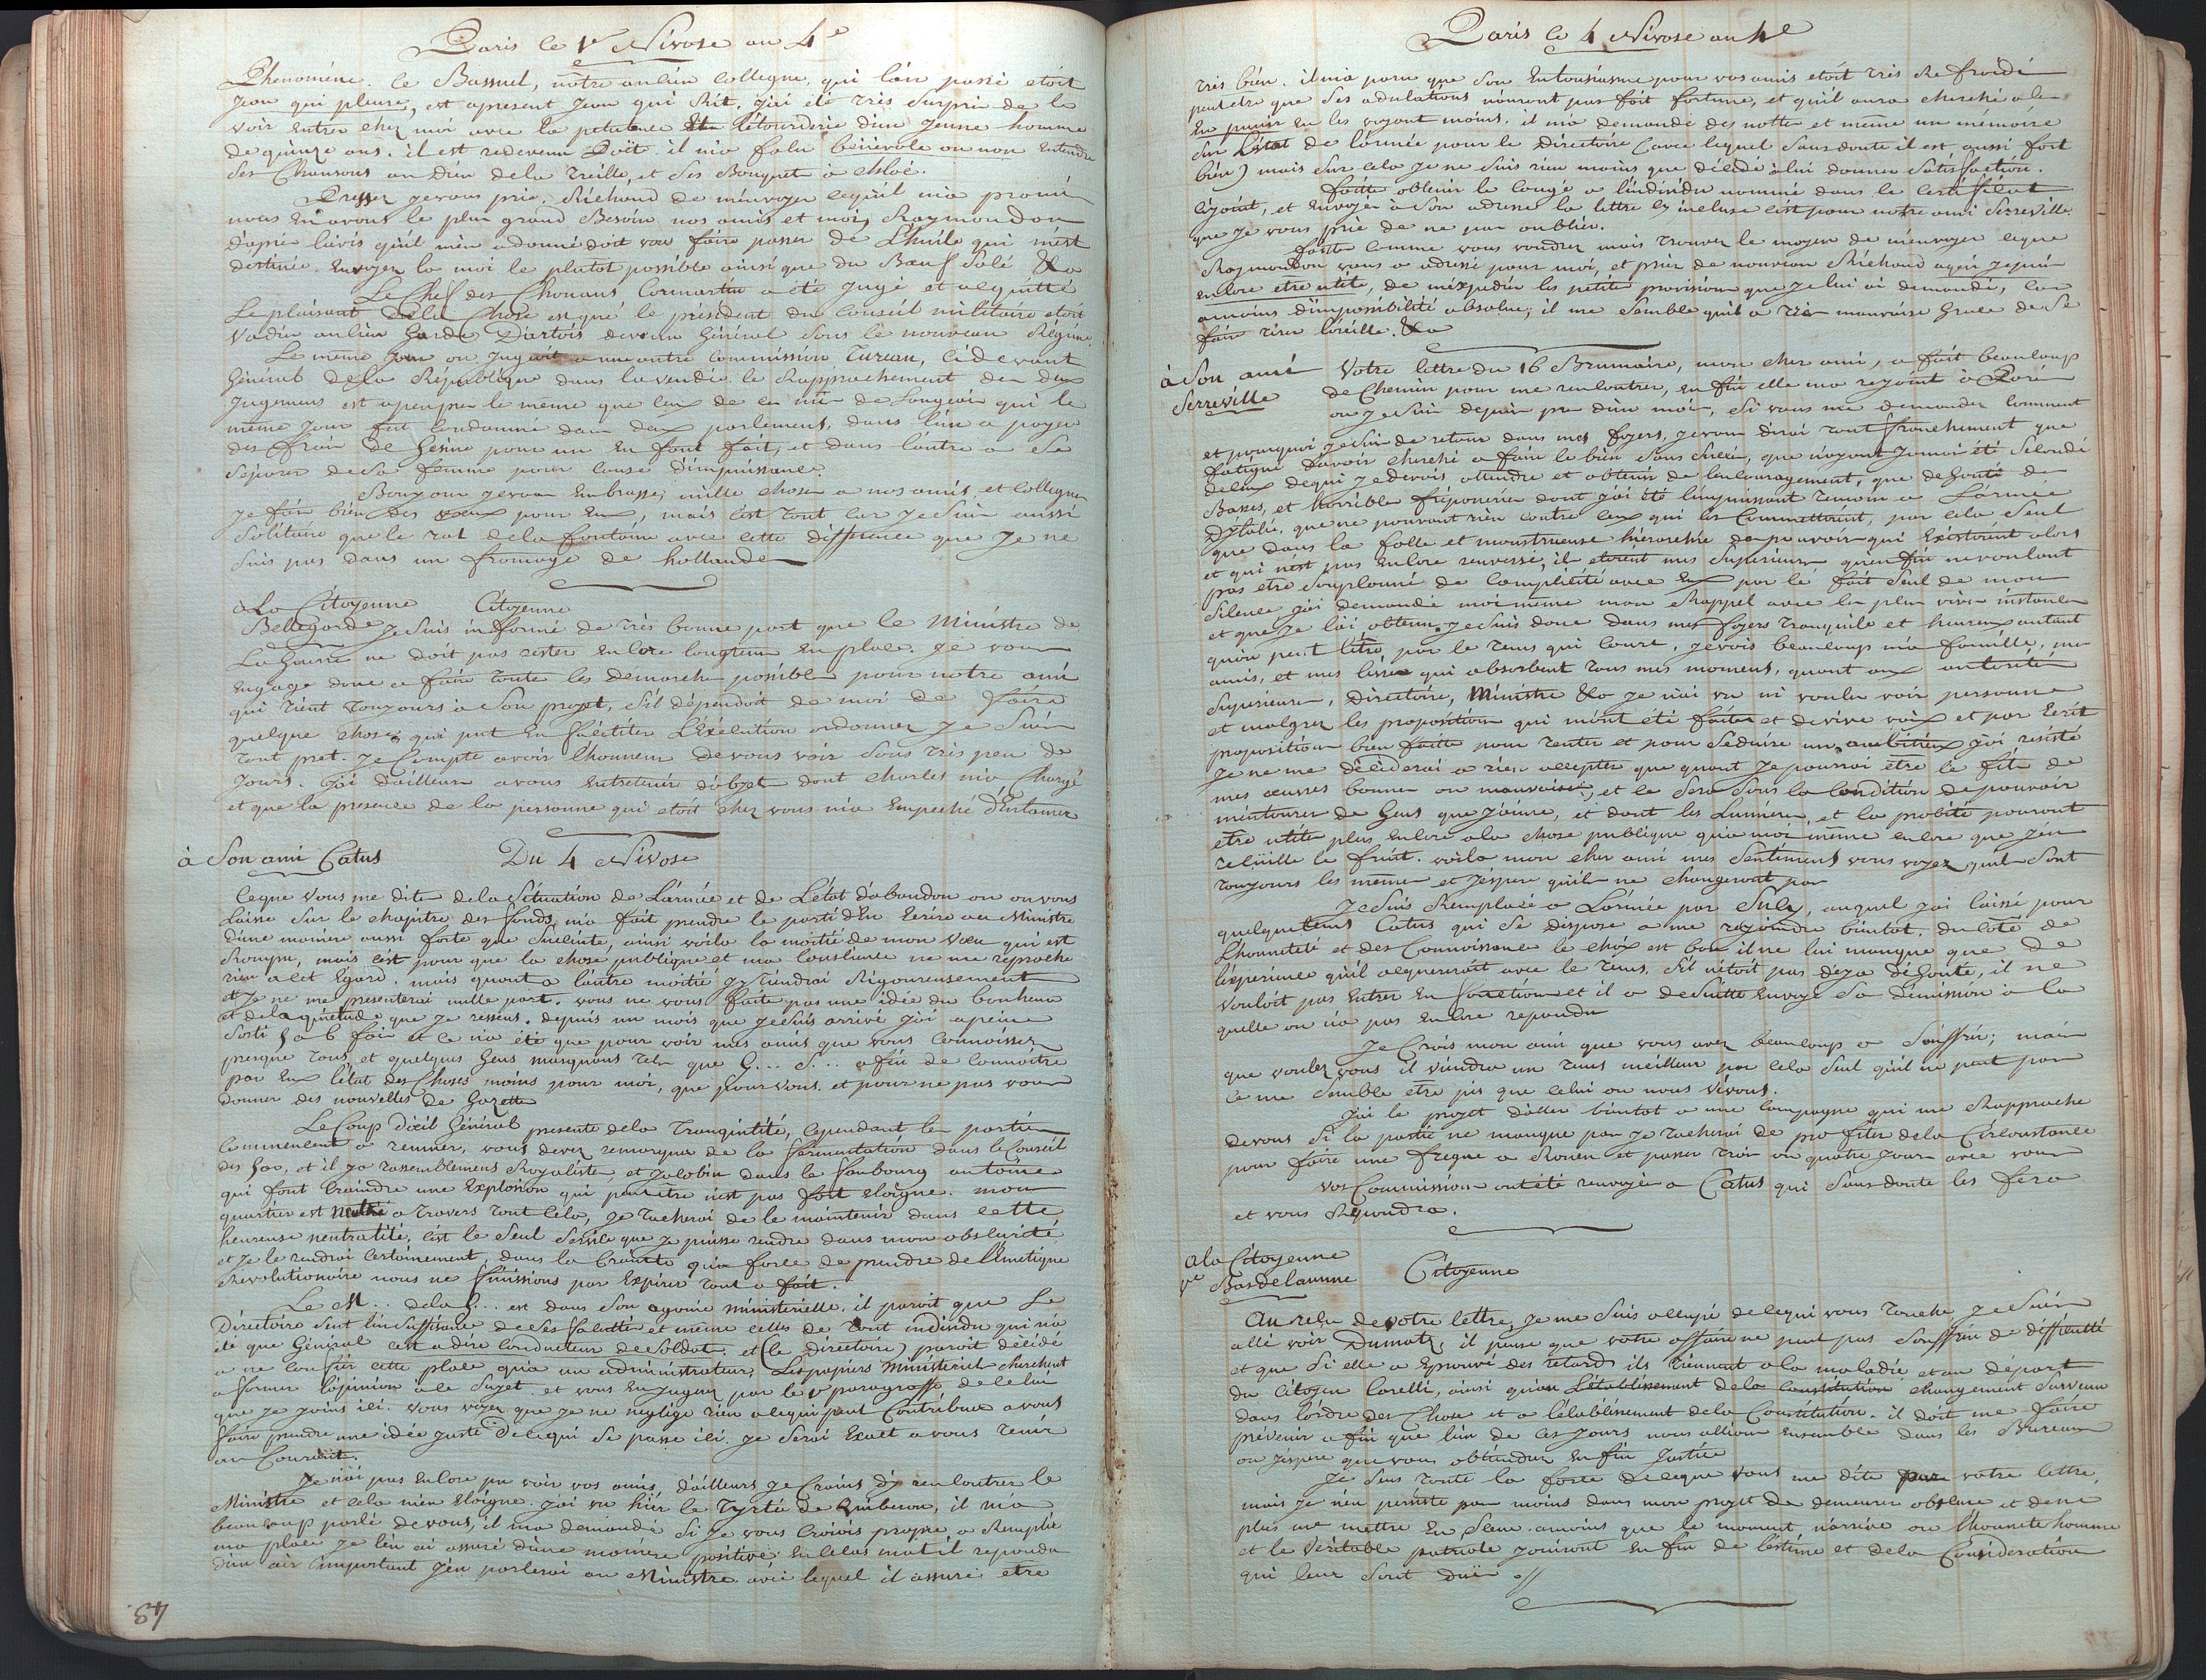 Paris le 1er Nivose an 4e
Phenoméne. le Bassuel, nôtre ancien collegue, qui l'an passé etoit
Jean qui pleure, est apresent Jean qui Rit, j'ai été très surpris de le
voir entrer chez moi avec la petulence et l'étourderie d'un jeune homme
de quinze ans. il est redevenu Poëte. il m'a falu bénévole ou non entendre
ses Chansons au Dieu de la Treille, et ses Bouquets à chloé.
Pressez je vous prie. Richaud de m'envoyer ce qu'il m'a promis
nous en avons le plus grand Besoin nos amis et moi, Raymondon
d'après l'avis qu'il m'en a donné doit vous faire passer de L'huile qui m'est
destinée. Envoyez la moi le plutot possible ainsi que du Bœuf Salé &a
Le Chef des Chouans Cormartin a été jugé et acquitté
Le plaisant de la Chose est que le président du Conseil militaire etoit
Vadin ancien Garde D'artois devenu Général sous le nouveau Régime
Le meme jour on jugeoit a une autre commission Tureau, ci devant
Général de la République dans la vendée. le Rapprochement des deux
jugemens est apeuprès le même que ceux de ce mr de Langeais qui le
même jour fut condamné dans deux parlemens, dans l'un a payer
des frais de Gesine pour un Enfant fait, et dans l'autre a se
séparer de sa femme pour cause d'impuissance.
Bonjour je vous Embrasse, mille choses a nos amis, et collegues
je fais bien des vœux pour Eux, mais c'est tout car je suis aussi
Solitaire que le rat de la fontaine avec cette difference que je ne
suis pas dans un fromage de hollande
à La Citoyenne Citoyenne
Bellegarde Je suis informé de très bonne part que le Ministre de
La Guerre ne doit pas rester encore longtems en place. je vous
engage donc a faire toutes les demarches possibles pour notre ami
qui tient toujours à son projet, s'il dépendoit de moi de faire
quelque chose qui put en faciliter L'exécution ordonnez je suis
tout pret. je compte avoir l'honneur de vous voir sous très peu de
jours. j'ai d'ailleurs a vous entretenir d'objets dont charles m'a Chargé
et que la presence de la personne qui etoit chez vous m'a empeché d'entamer
à Son ami Catus Du 4 Nivose
Ce que vous me dites de la Situation de L'armée et de L'état d'abandon ou on vous
laisse sur le chapitre des fonds, m'a fait prendre le parti d'en Ecrire au Ministre
d'une maniere aussi forte que Succinte, ainsi voila la moitié de mon Vœu qui est
Rompue, mais c'est pour que la chose publique et ma Conscience ne me reproche
rien a cet Egard. mais quant a l'autre moitié j'y tiendrai Rigoureusement
et je ne me presenterai nulle part. vous ne vous faites pas une idée du bonheur
et de la quietude que je ressens. depuis un mois que je suis arrivé j'ai apeine
sorti 5 a 6 fois et ce n'a été que pour voir mes amis que vous connoissez
presque tous, et quelques Gens marquans tels que G... S... afin de connoitre
par eux l'état des Choses moins pour moi, que pour vous. et pour ne pas vous
donner des nouvelles de Gazettes
Le Coup d'œil Général presente de la Tranquillité, cependant les partis
commencent a remuer, vous devez remarquer de la fermentation dans le Conseil
des 500, et il y a rassemblemens Royalistes, et jacobins dans le faubourg antoine
qui font craindre une Explosion qui peut etre n'est pas fort eloignée. mon
quartier est neutre a travers tout cela, je tacherai de le maintenir dans cette
heureuse neutralité, c'est le seul service que je puisse rendre dans mon obscurité
et je le rendrai certainement, dans la Crainte qu'a force de prendre de l'Emetique
Revolutionaire nous ne finissions par Expirer tout a fait.
Le M.. de la G... est dans son agonie ministerielle. il paroit que Le
Directoire sent l'insuffisance de ses facultés et même celles de tout individu qui n'a
été que Général c'est a dire conducteur de Soldats. et (le directoire) paroit décidé
a ne confier cette place qu'a un administrateur, Les papiers Ministeriels cherchent
a former l'opinion à ce Sujet. et vous en jugerez par le 1er paragraffe de celui
que je joins ici. vous voyez que je ne neglige rien a ce qui peut Contribuer a vous
faire prendre une idée juste de ce qui se passe ici. je serai Exact a vous tenir
au Courant.
Je n'ai pas encore pu voir vos amis, d'ailleurs je Crains d'y rencontrer le
Ministre et cela m'en eloigne. j'ai vu hier le Tyrtée de Quiberon, il m'a
beaucoup parlé de vous, il m'a demandé si je vous croiois propre a Remplir
ma place je l'en ai assuré d'une maniere positive. En ce cas m'at il repondu
d'un air important j'en parlerai au Ministre avec lequel il assure etre
84
Paris le 4 Nivose an 4e
très bien. il m'a paru que son entousiasme pour vos amis etoit très Refroidi
peut etre que ses adulations n'auront pas fait fortune, et qu'il aura cherché a les
en punir en les voyant moins. il m'a demandé des nottes et même un mémoire
sur L'état de l'armée pour le Directoire (avec lequel sans doute il est aussi fort
bien) mais sur cela je ne suis rien moins que décidé à lui donner Satisfaction.
faites obtenir le congé a l'individu nommé dans le certificat
cijoint, et envoyer à son adresse la lettre cy incluse c'est pour notre ami Serreville
que je vous prie de ne pas oublier.
faites comme vous voudrez mais trouvez le moyen de m'envoyer ce que
Raymondon vous a adressé pour moi, et prier de nouveau Richaud a qui je puis
encore etre utile, de m'expedier les petites provisions que je lui ai demandé, car
amoins d'impossibilité absolue; il me semble qu'il a très mauvaise grace de se
faire tirer l'oreille. &a
à Son ami Votre lettre du 16 Brumaire, mon cher ami, a fait beaucoup
Serreville de Chemin pour me rencontrer, enfin elle m'a rejoint à Paris
ou je suis depuis pres d'un mois, si vous me demandez comment
et pourquoi je suis de retour dans mes foyers, je vous dirai tout franchement que
fatigué d'avoir cherché a faire le bien sans succès, que n'ayant jamais été secondé
de ceux de qui je devois attendre et obtenir de l'encouragement, que degouté de
Basses, et horribles friponeries dont j'ai été l'impuissant temoin a L'armée
D'italie, que ne pouvant rien contre ceux qui les Commettoient, par cela seul
que dans la folle et monstrueuse hierarchie de pouvoirs qui Existoient alors
et qui n'est pas encore renversé, ils etoient mes superieurs qu'enfin ne voulant
pas etre soupçonné de complicité avec eux par le fait seul de mon
silence j'ai demandé moi même mon Rappel avec les plus vives instances
et que je l'ai obtenu. je suis donc dans mes foyers tranquile et heureux autant
qu'on peut l'être, par le tems qui court, je vois beaucoup ma famille, mes
amis, et mes livres qui absorbent tous mes momens, quant aux autorités
Superieures, Directoire, Ministres &a je n'ai vu ni voulu voir personne
et malgrez les propositions qui m'ont été faites et de vive voix et par Ecrit
propositions bien faites pour tenter et pour seduire un ambitieux j'ai resisté
je ne me déciderai a rien accepter que quant je pourrai etre le fils de
mes œuvres bonnes ou mauvaises, et ce sera sous la condition de pouvoir
m'entourer de Gens que j'aime, et dont les Lumieres, et la probité pouront
etre utiles plus encore a la chose publique qu'a moi même encore que j'en
recüille le fruit. voila mon cher ami mes sentimens vous voyez qu'ils sont
toujours les mêmes et j'espere qu'ils ne changeront pas
Je suis Remplacé a L'armée par Sucy, auquel j'ai laissé pour
quelque tems Catus qui se dispose a me rejoindre bientot. du coté de
L'honneteté et des Connoissances le choix est bon il ne lui manque que de
l'experience qu'il acquerreroit avec le tems. s'il n'etoit pas deja dégouté, il ne
vouloit pas entrer en fonctions et il a de suitte envoyé sa démission à la
quelle on n'a pas encore repondu
Je Crois mon ami que vous avez beaucoup a souffrir; mais
que voulez vous il viendra un tems meilleur par cela seul qu'il ne peut pas
ce me semble etre pis que celui ou nous vivons.
J'ai le projet d'aller bientot a une campagne qui me Rapproche
de vous si la partie ne manque pas je tacherai de profiter de la Circonstance
pour faire une fregue a Rouen et passer trois ou quatre jours avec vous
vos Commissions ont été renvoyées a Catus qui sans doute les fera
et vous Repondra.
a la Citoyenne
ve Basdelaunne Citoyenne
Au reçu de votre lettre, je me suis occupé de ce qui vous touche je suis
allé voir Dumats, il pense que votre affaire ne peut pas souffrir de difficulté
et que si elle a eprouvé des retards ils tiennent a la maladie et au départ
du Citoyen Corelli, ainsi qu'au L'établissement de la Constitution changement survenu
dans l'ordre des Choses et a l'établissement de la Constitution. il doit me faire
prévenir afin que l'un de ces jours nous allions ensemble dans les Bureaux
ou j'espere que vous obtiendrez enfin justice
Je sens toute la force de ce que vous me dites par votre lettre,
mais je n'en persiste pas moins dans mon projet de demeurer obscure et de ne
plus me mettre en scene. amoins que le moment n'arrive ou l'honnete homme
et le Veritable patriote jouiront enfin de l'estime et de la Consideration
qui leur sont düe.